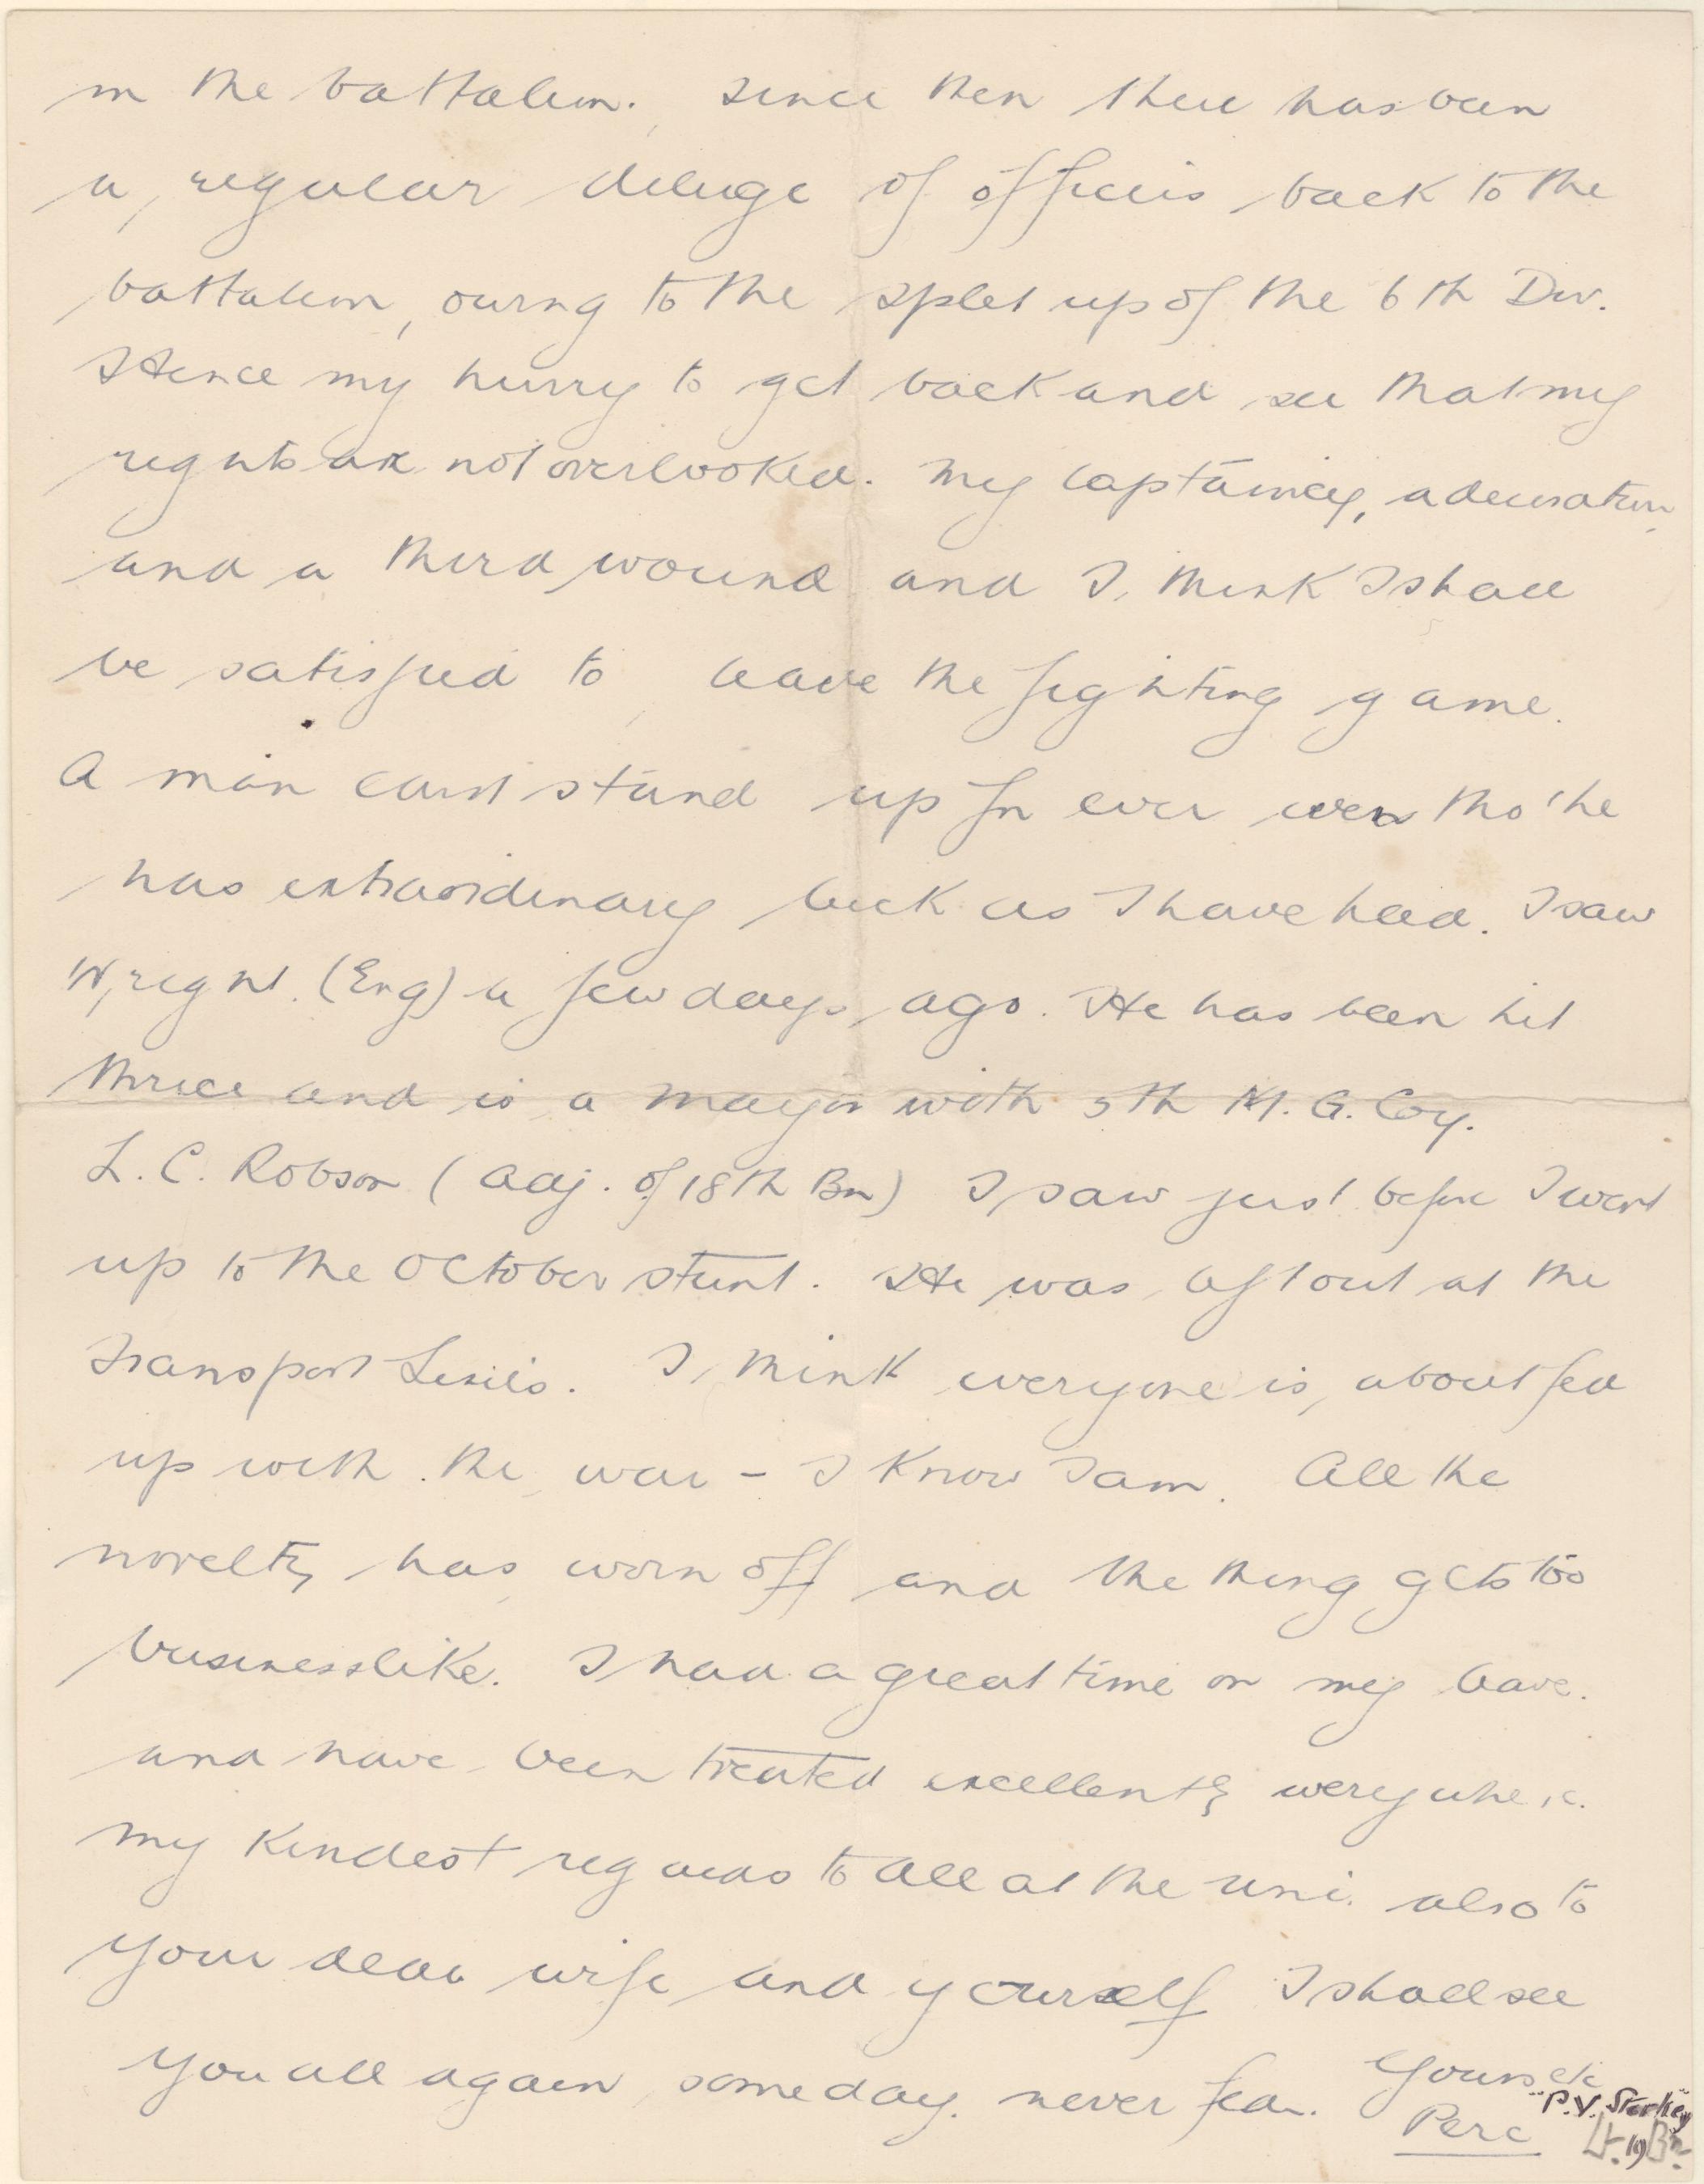 in the battalion. Since then there has been
a regular deluge of officers back to the
battalion, owing to the split up of the 6th Div.
Hence my hurry to get back and see that my
rights are not overlooked. My captaincy, a decoration
and a third wound and I think I shall
be satisfied to leave the fighting game.
A man can't stand up for ever even tho' he
has extraordinary luck as I have had. I saw
Wright (Eng) a few days ago. He has been hit
thrice and is a major with 5th M.G. Coy.
L.C. Robson (Adj. of 18th Bn) I saw just before I went
up to the October stunt. He was left out at the
Transport Lines. I think everyone is about fed
up with the war - I know I am. All the
novelty has worn off and the thing gets too
businesslike. I had a great time on my leave.
and have been treated excellently everywhere.
My kindest regards to all at the Uni. also to
your dear wife and yourself I shall see
you all again someday. never fear. Yours etc
Perc "P.V. Storkey"
Lt. 19 Bn.